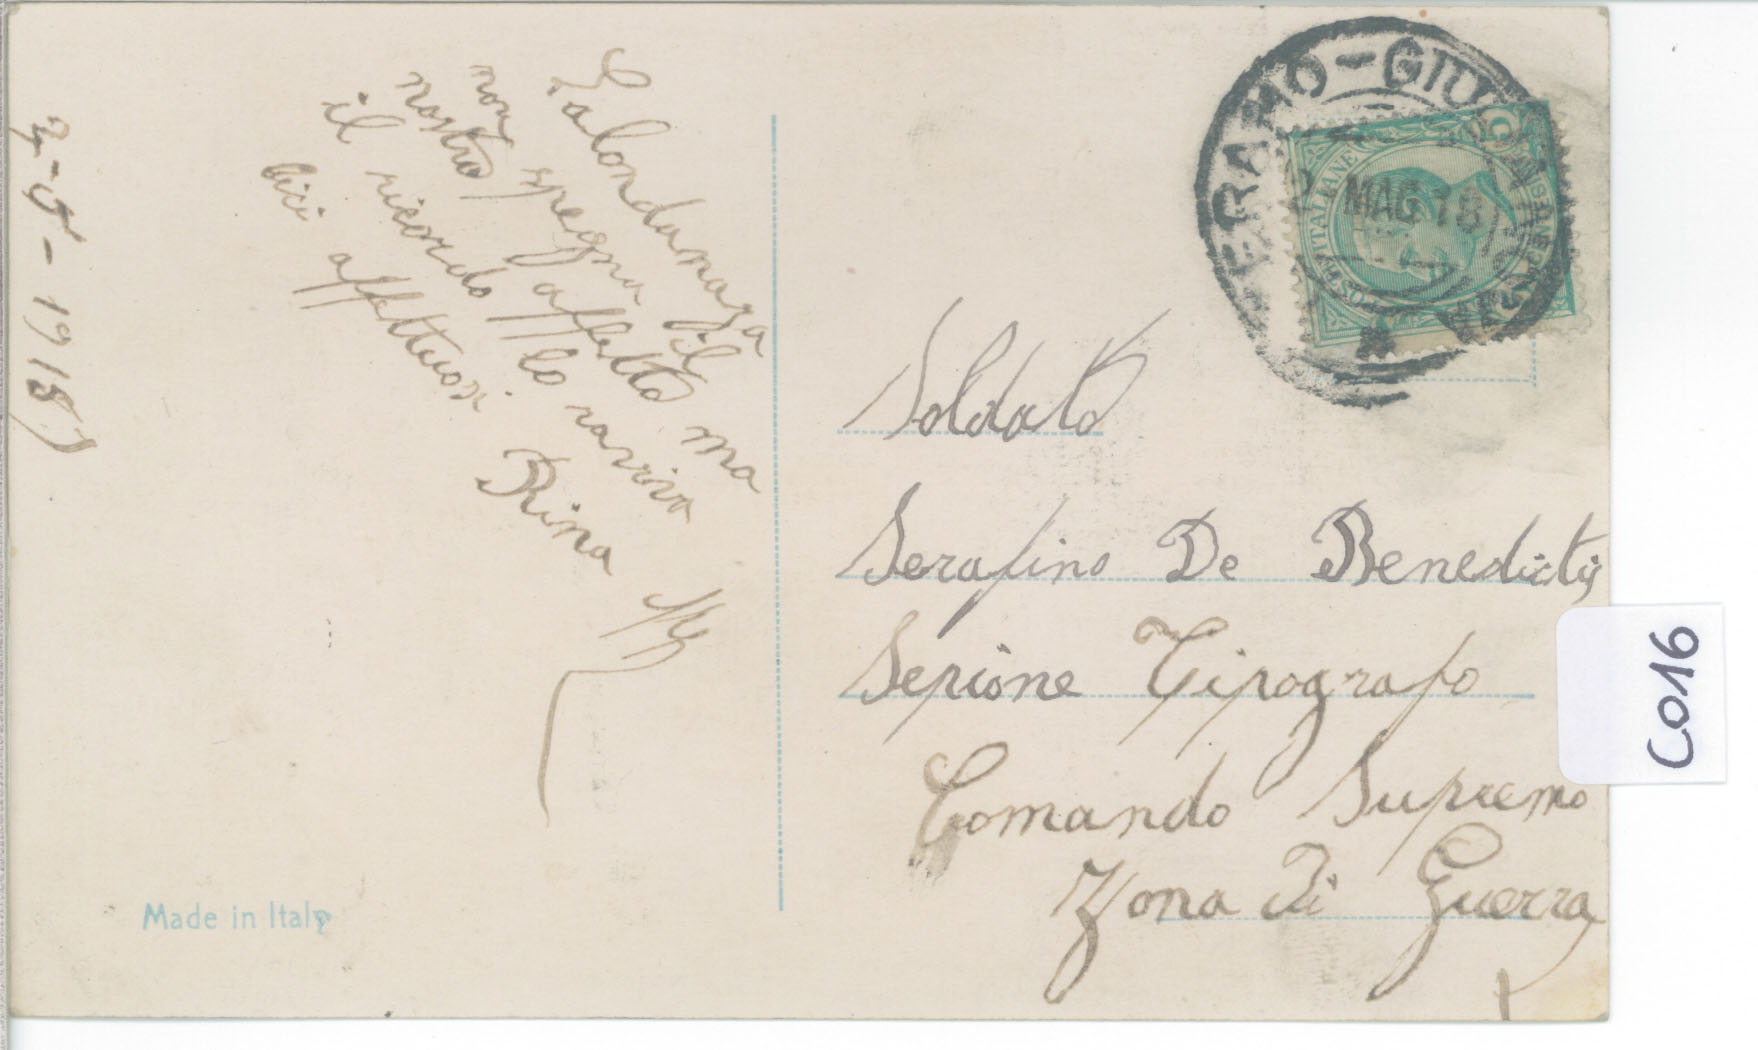 2-5-1918
La londanaza
non spegna il
nostro affetto ma
il ricordo lo ravviva
bici affettuosi
Rina
Soldato
Serafino De Benedictis
Sepione Tipografo
Comando Supremo
Zona Di Guerra
Made in Italy
TERAMO - GIU
MAG 18
POSTE ITALIANE
5
C016